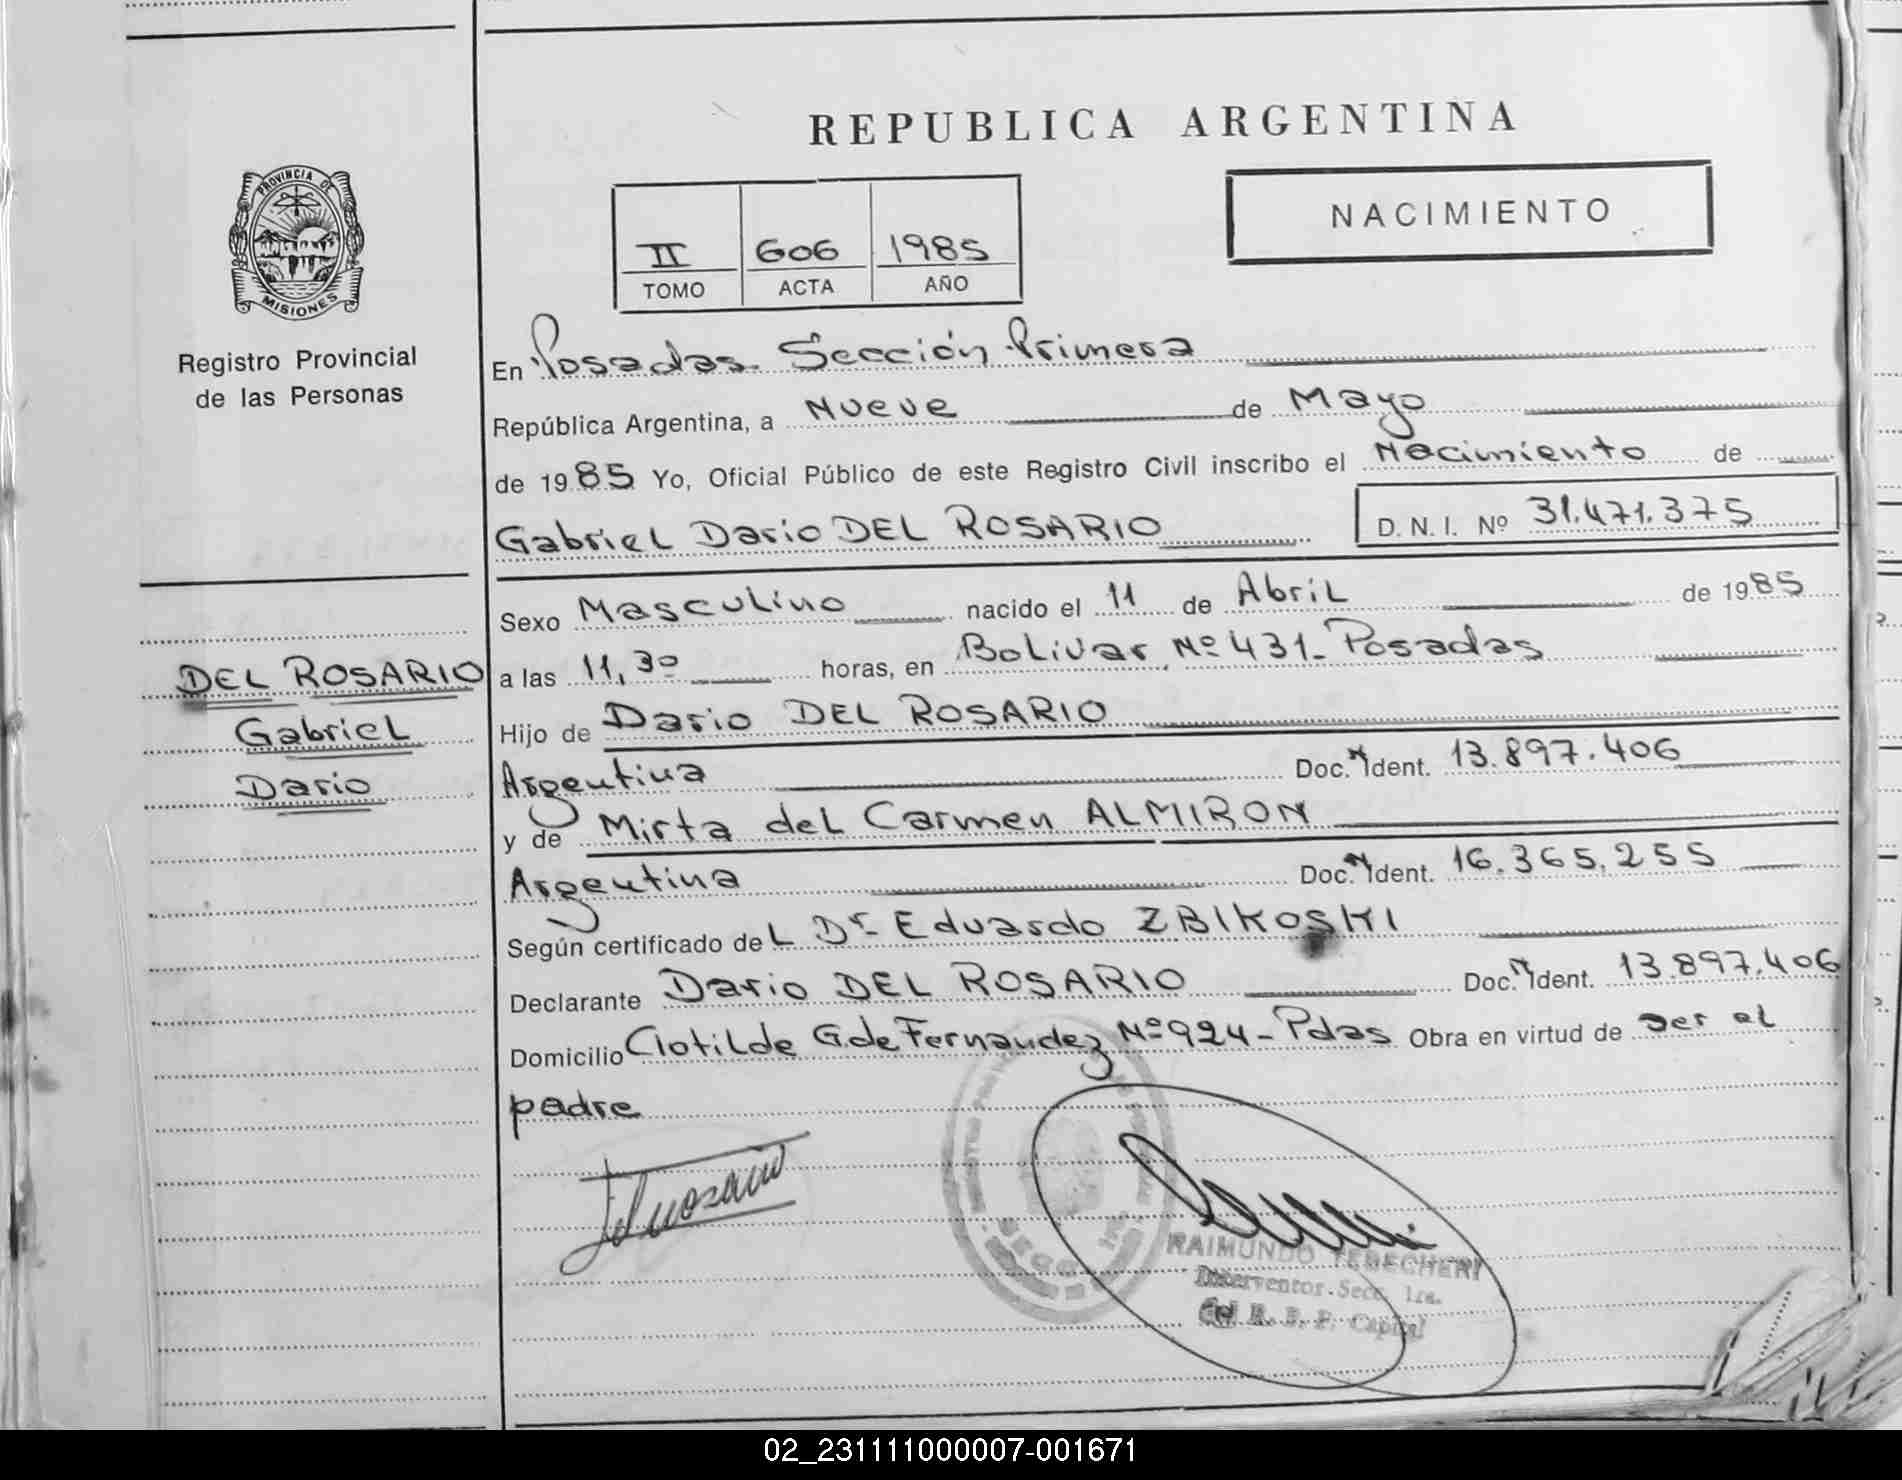 REPUBLICA ARGENTINA
PROVINCIA DE
MISIONES
Registro Provincial
de las Personas
II 606 1985
TOMO ACTA AÑO
NACIMIENTO
En Posadas. Sección Primera
República Argentina, a Nueve de Mayo
de 1985 Yo, Oficial Público de este Registro Civil inscribo el Nacimiento de
Gabriel Dario DEL ROSARIO D. N. I. Nº 31.471.375
Sexo Masculino nacido el 11 de Abril de 1985
a las 11,30 horas, en Bolivar Nº 431- Posadas
Hijo de Dario DEL ROSARIO
Argentina Doc. N Ident. 13.897.406
y de Mirta del Carmen ALMIRON
Argentina Doc. N Ident. 16.365.255
Según certificado del Dr. Eduardo ZBIKOSKI
Declarante Dario DEL ROSARIO Doc. N Ident. 13.897.406
Domicilio Clotilde G. de Fernandez Nº 924- Pdas Obra en virtud de ser el
padre
DEL ROSARIO
Gabriel
Dario
RAIMUNDO
Interventor Secc. 1ra.
del Capital
02_231111000007-001671